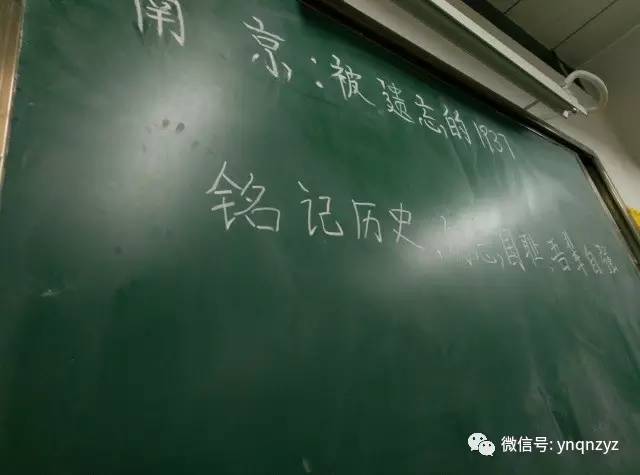 南京:被遗忘的1937
铭记历史,勿忘国难,吾辈自强
微信号: ynqnzyz